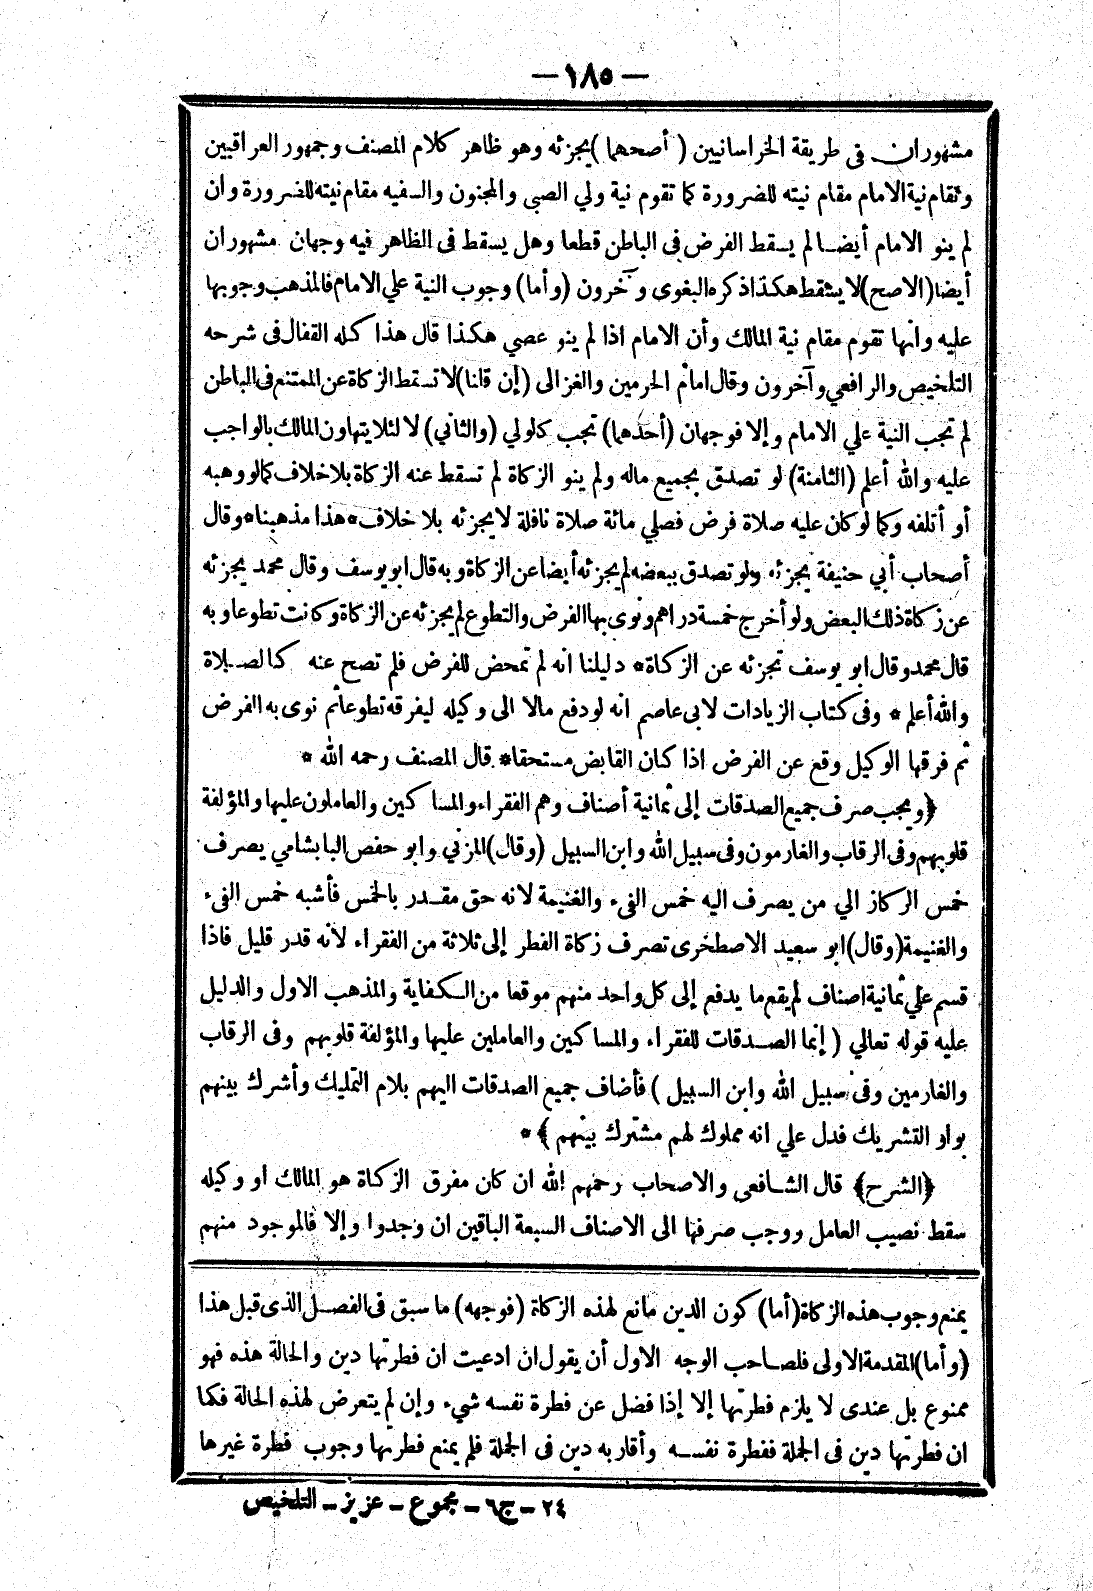 — ١٨٥ —
مشهوران فى طريقة الخراسانيين ( أصحهما ) يجزئه وهو ظاهر كلام المصنف وجمهور العراقيين
وتقام نية الامام مقام نيته للضرورة كما تقوم نية ولي الصبى والمجنون والسفيه مقام نيته للضرورة وان
لم ينو الامام أيضا لم يسقط الفرض فى الباطن قطعا وهل يسقط فى الظاهر فيه وجهان مشهوران
أيضا ( الاصح ) لا يسقط هكذا ذكره البغوى وآخرون ( وأما ) وجوب النية علي الامام فالمذهب وجوبها
عليه وانها تقوم مقام نية المالك وأن الامام اذا لم ينو عصي هكذا قال هذا كله القفال فى شرحه
التلخيص والرافعي وآخرون وقال امام الحرمين والغزالى ( إن قلنا ) لا تسقط الزكاة عن الممتنع فى الباطن
لم تجب النية علي الامام وإلا فوجهان ( أحدهما ) تجب كالولي ( والثاني ) لا لئلا يتهاون المالك بالواجب
عليه والله أعلم ( الثامنة ) لو تصدق بجميع ماله ولم ينو الزكاة لم تسقط عنه الزكاة بلا خلاف كما لو وهبه
أو أتلفه وكما لو كان عليه صلاة فرض فصلي مائة صلاة نافلة لا يجزئه بلا خلاف * هذا مذهبنا * وقال
أصحاب أبي حنيفة يجزئه ولو تصدق ببعضه لم يجزئه أيضا عن الزكاة وبه قال ابو يوسف وقال محمد يجزئه
عن زكاة ذلك البعض ولو أخرج خمسة دراهم ونوى بها الفرض والتطوع لم يجزئه عن الزكاة وكانت تطوعا وبه
قال محمد وقال ابو يوسف تجزئه عن الزكاة * دليلنا انه لم تمحض للفرض فلم تصح عنه كالصلاة
والله أعلم * وفى كتاب الزيادات لابى عاصم انه لو دفع مالا الى وكيله ليفرقه تطوعا ثم نوى به الفرض
ثم فرقها الوكيل وقع عن الفرض اذا كان القابض مستحقا * قال المصنف رحمه الله *
﴿ ويجب صرف جميع الصدقات إلى ثمانية أصناف وهم الفقراء والمساكين والعاملون عليها والمؤلفة
قلوبهم وفى الرقاب والغارمون وفى سبيل الله وابن السبيل ( وقال ) المزني وابو حفص البابشامي يصرف
خمس الركاز الي من يصرف اليه خمس الفىء والغنيمة لانه حق مقدر بالخمس فأشبه خمس الفىء
والغنيمة ( وقال ) ابو سعيد الاصطخرى تصرف زكاة الفطر إلى ثلاثة من الفقراء لأنه قدر قليل فاذا
قسم علي ثمانية اصناف لم يقع ما يدفع إلى كل واحد منهم موقعا من الكفاية والمذهب الاول والدليل
عليه قوله تعالي ( إنما الصدقات للفقراء والمساكين والعاملين عليها والمؤلفة قلوبهم وفى الرقاب
والغارمين وفى سبيل الله وابن السبيل ) فأضاف جميع الصدقات اليهم بلام التمليك وأشرك بينهم
بواو التشريك فدل علي انه مملوك لهم مشترك بينهم ﴾ *
﴿ الشرح ﴾ قال الشافعى والاصحاب رحمهم الله ان كان مفرق الزكاة هو المالك او وكيله
سقط نصيب العامل ووجب صرفها الى الاصناف السبعة الباقين ان وجدوا وإلا فالموجود منهم
يمنع وجوب هذه الزكاة ( أما ) كون الدين مانع لهذه الزكاة ( فوجهه ) ما سبق فى الفصل الذى قبل هذا
( وأما ) المقدمة الاولى فلصاحب الوجه الاول أن يقول ان ادعيت ان فطرتها دين والحالة هذه فهو
ممنوع بل عندى لا يلزم فطرتها إلا إذا فضل عن فطرة نفسه شيء وإن لم يتعرض لهذه الحالة فكما
ان فطرتها دين فى الجملة ففطرة نفسه وأقاربه دين فى الجملة فلم يمنع فطرتها وجوب فطرة غيرها
٢٤ – ج٦ – مجموع – عزيز – التلخيص